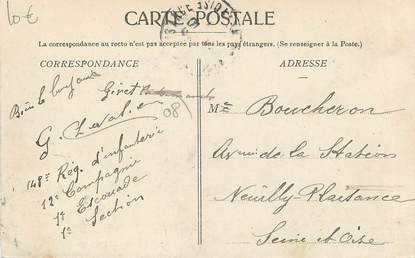 10€
CARTE POSTALE
La correspondance au recto n'est pas acceptée par tous les pays étrangers. (Se renseigner à la Poste.)
CORRESPONDANCE
Bien le bonjour
Givet
G. Chevalier
08
148e Rég. d'infanterie
12e Compagnie
1e Escouade
1e Section
ADRESSE
Me Boucheron
Avenue de la Station
Neuilly-Plaisance
Seine et Oise